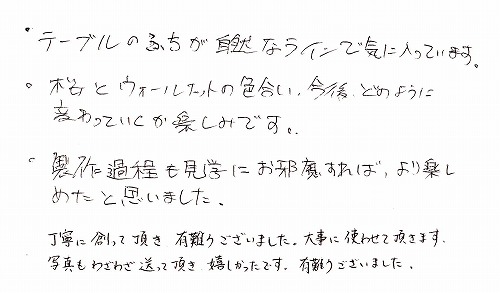 ・テーブルのふちが自然なラインで気に入っています。
・桜とウォールナットの色合い、今後、どのように
変わっていくか楽しみです。
・製作過程も見学にお邪魔すれば、より楽し
めたと思いました。
丁寧に創って頂き 有難うございました。大事に使わせて頂きます。
写真もわざわざ送って頂き 嬉しかったです。有難うございました。